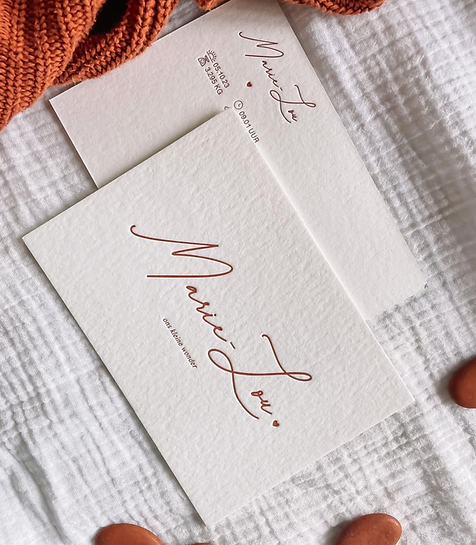 Marie-
Lou
05.10.23
3295 KG
09.01 UUR
Marie-
Lou
ons kleine wonder